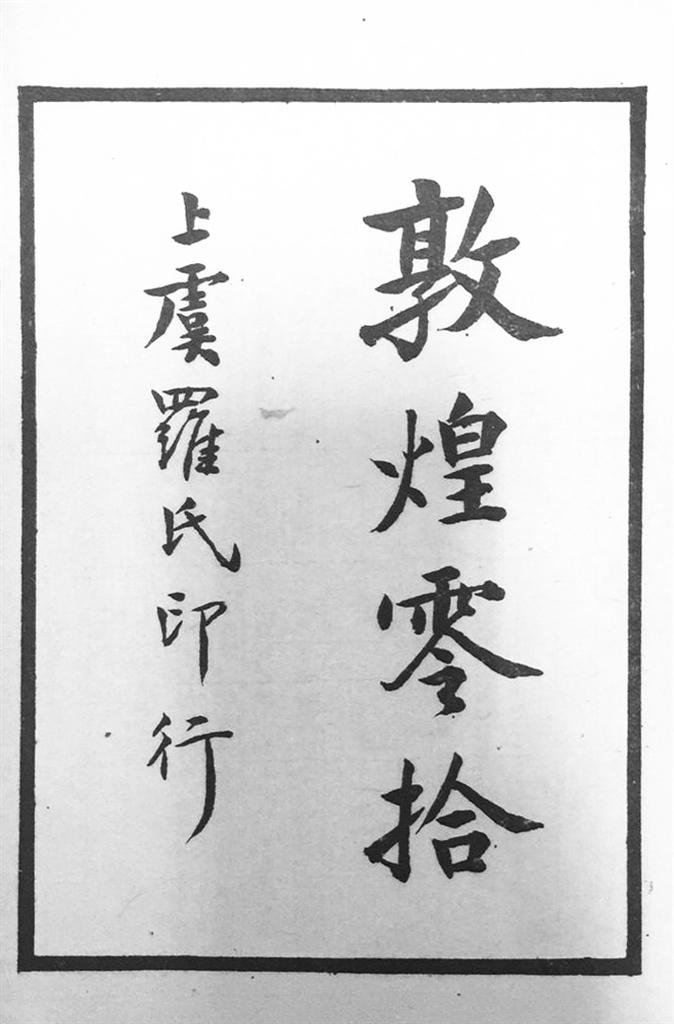 敦煌零拾
上虞羅氏印行